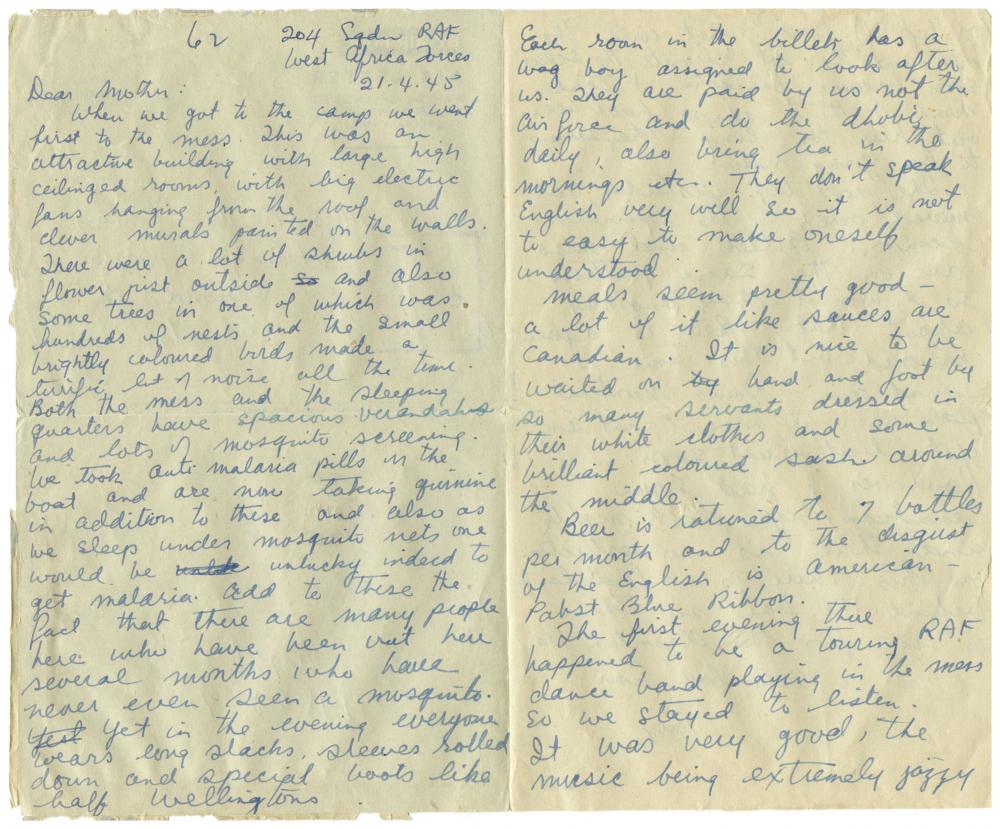 62 204 Sqdn RAF
West Africa Forces
21.4.45
Dear Mother:
When we got to the camp we went
first to the mess. This was an
attractive building with large high
ceilinged rooms, with big electric
fans hanging from the roof and
clever murals painted on the walls.
There were a lot of shrubs in
flower just outside so and also
some trees in one of which was
hundreds of nests and the small
brightly coloured birds made a
terrific lot of noise all the time.
Both the mess and the sleeping
quarters have spacious verandahs
and lots of mosquito screening.
We took anti malaria pills on the
boat and are now taking quinine
in addition to these and also as
we sleep under mosquito nets one
would be unlucky indeed to
get malaria. Add to these the
fact that there are many people
here who have been out here
several months who have
never even seen a mosquito.
Yet in the evening everyone
wears long slacks, sleeves rolled
down and special boots like
half wellingtons.
Each room in the billets has a
wog boy assigned to look after
us. They are paid by us not the
Air force and do the dhobi
daily, also bring tea in the
mornings etc. They don't speak
English very well so it is not
to easy to make oneself
understood.
Meals seem pretty good -
a lot of it like sauces are
Canadian. It is nice to be
waited on by hand and foot by
so many servants dressed in
their white clothes and some
brilliant coloured sash around
the middle.
Beer is rationed to 7 bottles
per month and to the disgust
of the English is American -
Pabst Blue Ribbon.
The first evening there
happened to be a touring RAF
dance band playing in the mess
so we stayed to listen.
It was very good, the
music being extremely jazzy